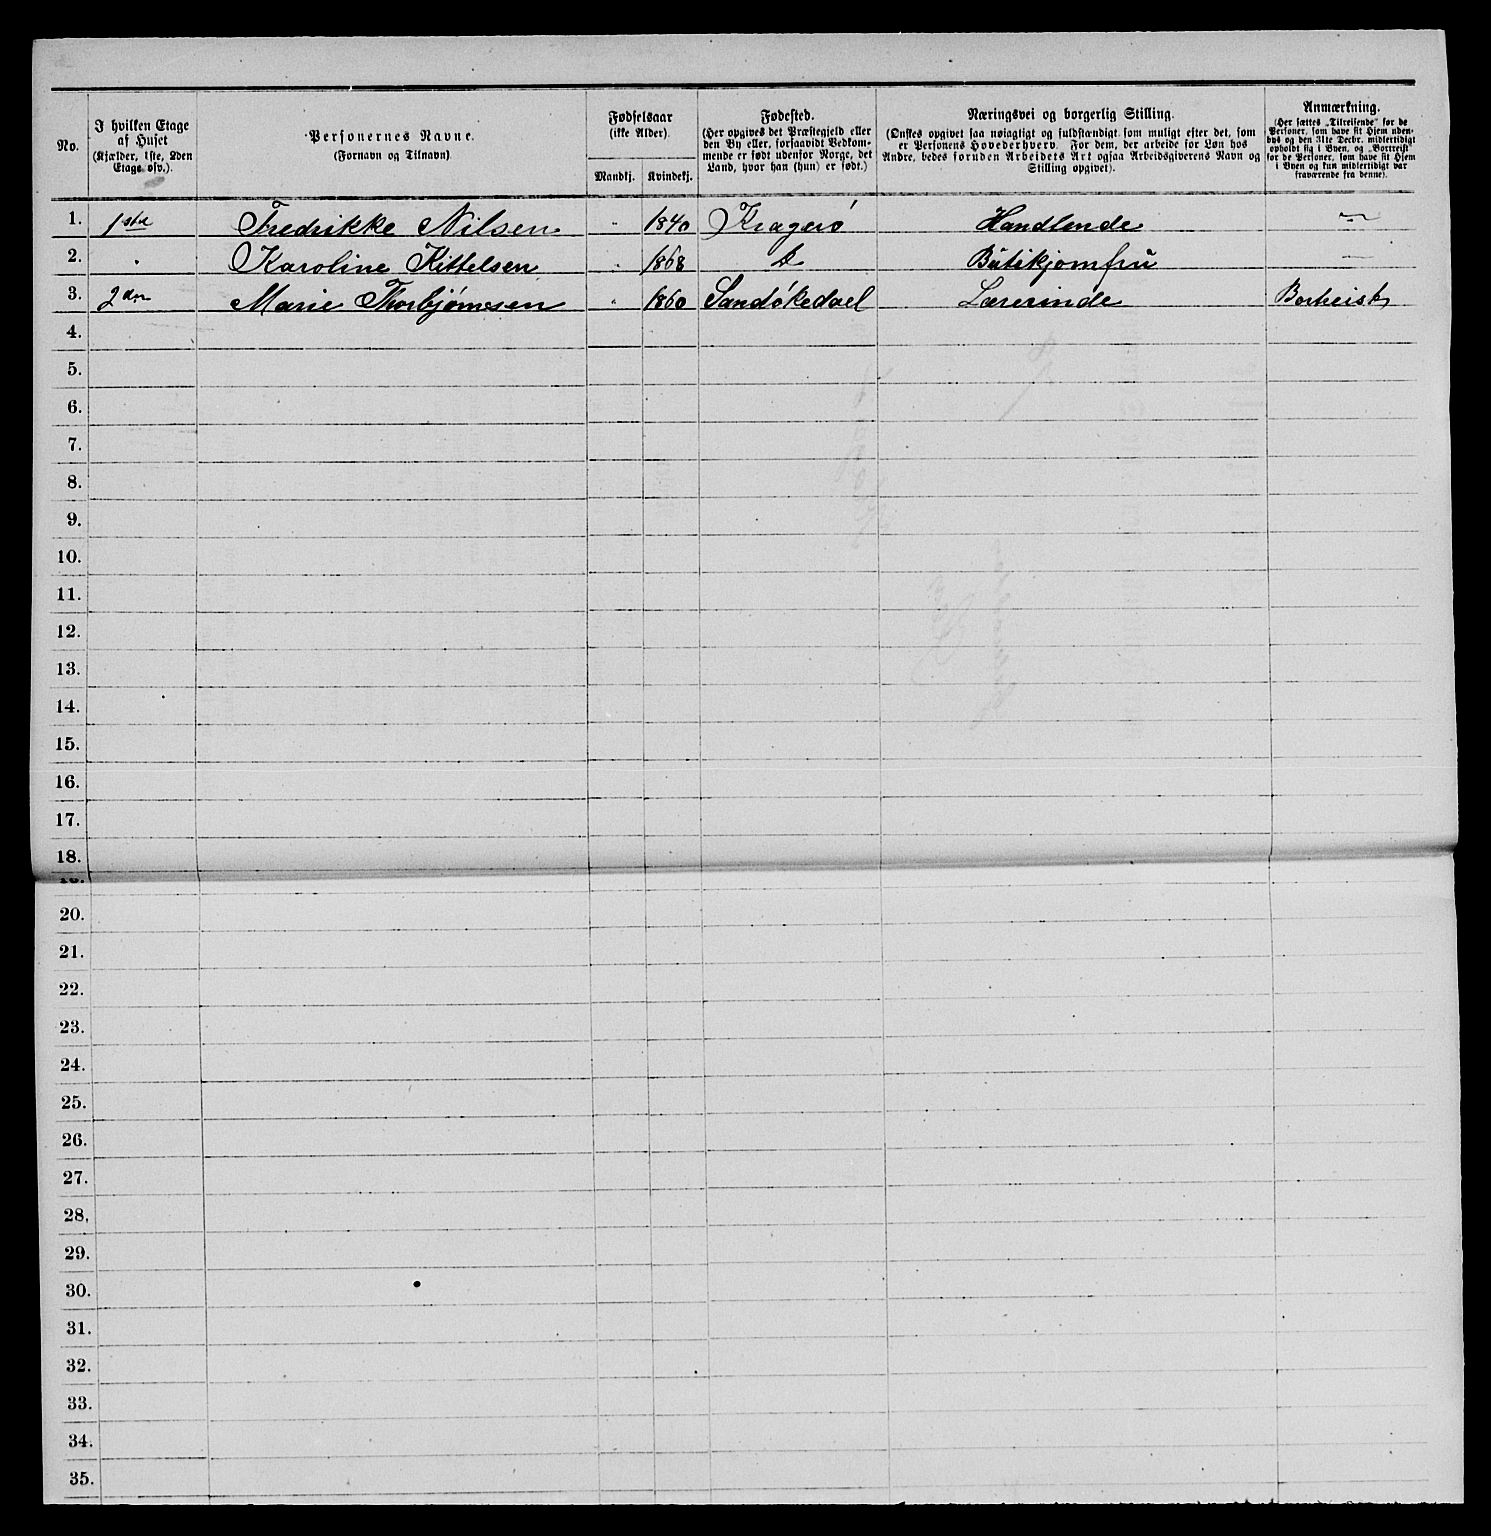 No.
I hvilken Etage
af Huset
(Kjælder, 1ste, 2den
Etage osv.).
Personernes Navne.
(Fornavn og Tilnavn)
Fødselsaar
(ikke Alder).
Mandkj. Kvindekj.
Fødested.
(Her opgives det Præstegjeld eller
den By eller, forsaavidt Vedkom-
mende er født udenfor Norge, det
Land, hvor han (hun) er født.)
Næringsvei og borgerlig Stilling.
(Ønskes opgivet saa nøiagtigt og fuldstændigt som muligt efter det, som
er Personens Hovederhverv. For dem, der arbeide for Løn hos
Andre, bedes foruden Arbeidets Art ogsaa Arbeidsgiverens Navn og
Stilling opgivet).
Anmærkning.
(Her sættes „Tilreisende“ for de
Personer, som have sit Hjem uden-
bys og den 31te Decbr. midlertidigt
opholdt sig i Byen, og „Bortreist“
for de Personer, som have sit Hjem
i Byen og kun midlertidigt var
fraværende fra denne).
1. 1ste Fredrikke Nilsen " 1840 Kragerø Handlende —
2. " Karoline Kittelsen " 1868 Do Butikjomfru —
3. 2den Marie Thorbjørnsen " 1860 Sandøkedael Lærerinde Bortreist
4.
5.
6.
7.
8.
9.
10.
11.
12.
13.
14.
15.
16.
17.
18.
19.
20.
21.
22.
23.
24.
25.
26.
27.
28.
29.
30.
31.
32.
33.
34.
35.